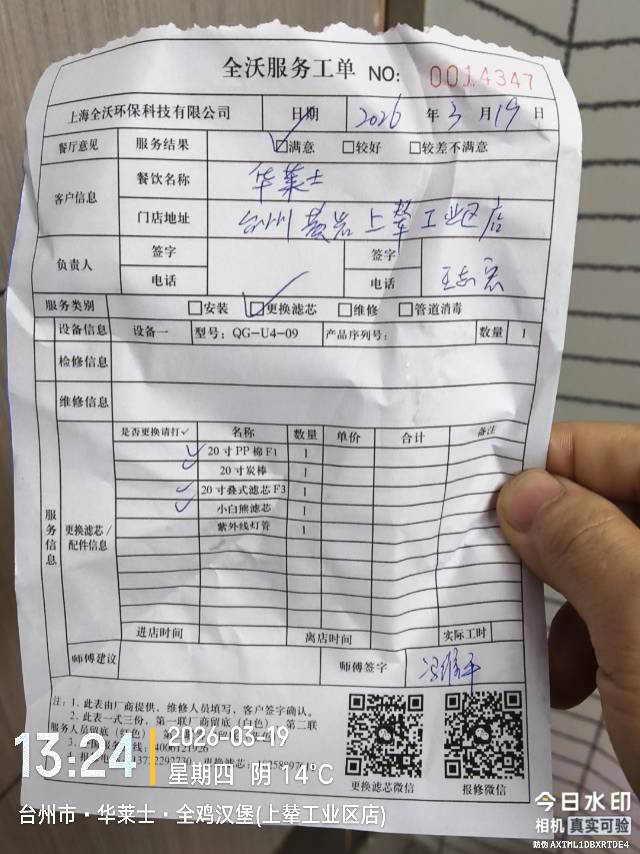 全沃服务工单 NO: 0014347
上海全沃环保科技有限公司 日期 2026 年 3 月 19 日
餐厅意见 服务结果 ☑满意 □较好 □较差不满意
客户信息 餐饮名称 华莱士
门店地址 台州黄岩上辇工业区店
负责人 签字 签字
电话 电话 王志宏
服务类别 □安装 ☑更换滤芯 □维修 □管道消毒
设备信息 设备一 型号: QG-U4-09 产品序列号: 数量 1
检修信息
维修信息
服务信息
更换滤芯/配件信息
是否更换请打✓ 名称 数量 单价 合计 备注
✓ 20寸PP棉F1 1
20寸炭棒 1
✓ 20寸叠式滤芯F3 1
✓ 小白熊滤芯 1
紫外线灯管 1
进店时间 离店时间 实际工时
师傅建议 师傅签字
注: 1. 此表由厂商提供, 维修人员填写、客户签字确认。
2. 此表一式三份, 第一联厂商留底(白色)、第二联
服务人员留底(红色)、第
更换滤芯微信 报修微信
13:24
2026-03-19
星期四 阴 14°C
台州市·华莱士·全鸡汉堡(上辇工业区店)
今日水印
相机 真实可验
防伪 AXTML1DBXRTDE4